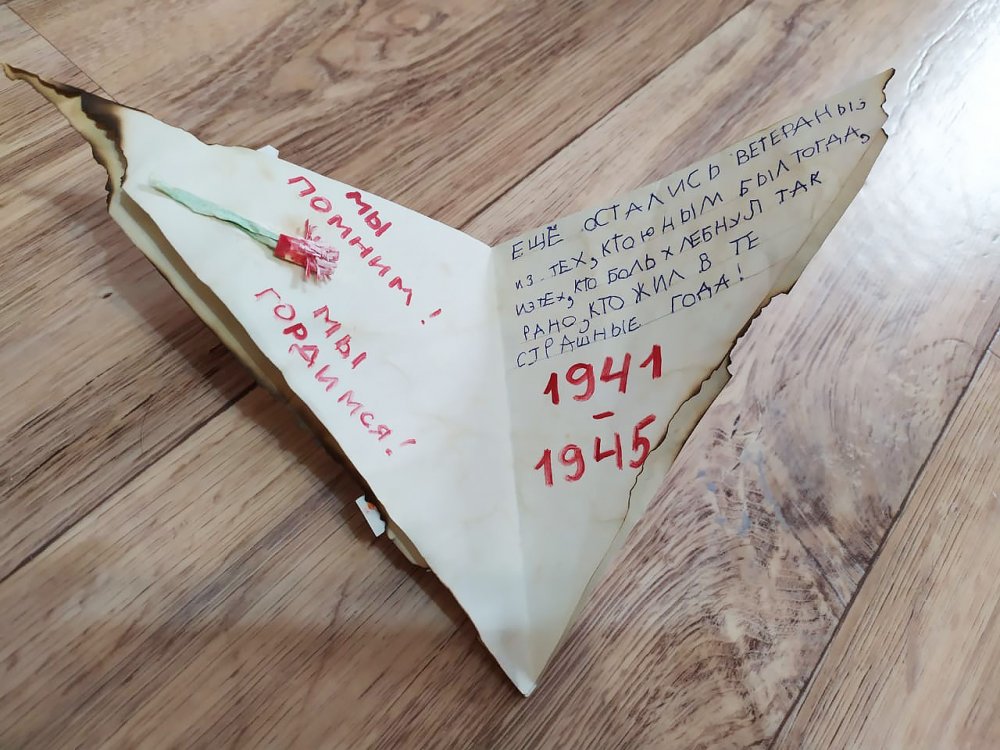 МЫ
ПОМНИМ!
МЫ
ГОРДИМСЯ!
ЕЩЁ ОСТАЛИСЬ ВЕТЕРАНЫ
ИЗ ТЕХ, КТО ЮНЫМ БЫЛ ТОГДА,
ИЗ ТЕХ, КТО БОЛЬ ХЛЕБНУЛ ТАК
РАНО, КТО ЖИЛ В ТЕ
СТРАШНЫЕ ГОДА!
1941
-
1945